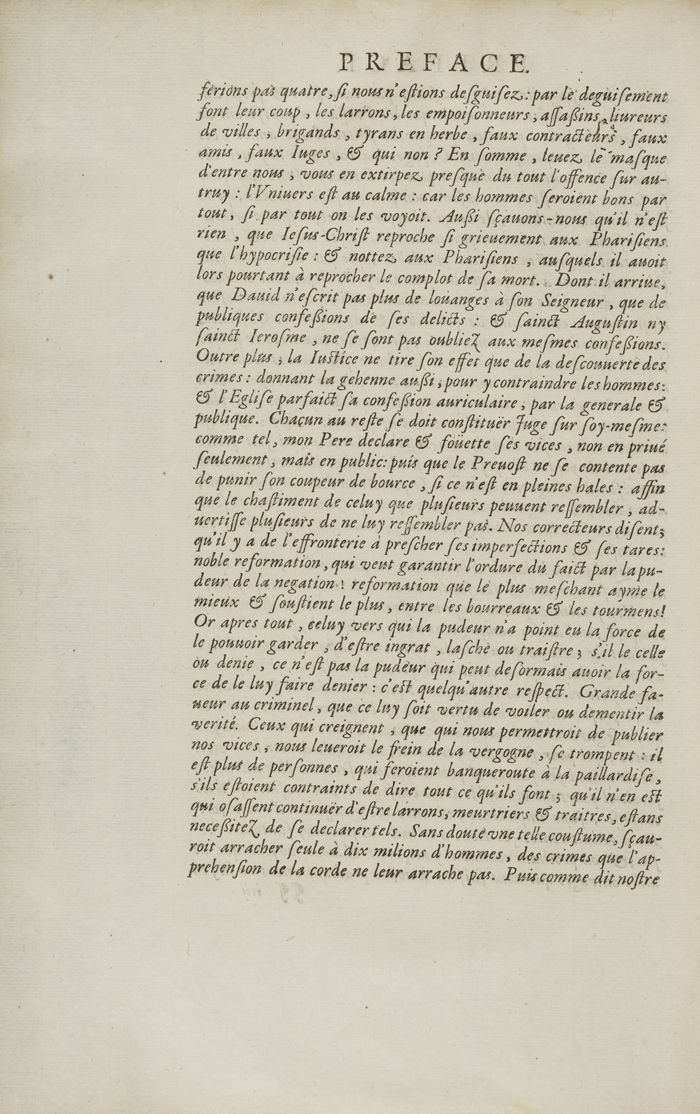 PREFACE.
ferions pas quatre, si nous n'estions desguisez: par le deguisement
font leur coup, les larrons, les empoisonneurs, assaßins, liureurs
de villes, brigands, tyrans en herbe, faux contracteurs, faux
amis, faux Iuges, & qui non? En somme, leuez le masque
d'entre nous, vous en extirpez presque du tout l'offence sur au-
truy: l'Vniuers est au calme: car les hommes seroient bons par
tout, si par tout on les voyoit. Außi sçauons-nous qu'il n'est
rien, que Iesus-Christ reproche si grieuement aux Pharisiens
que l'hypocrisie: & nottez aux Pharisiens, ausquels il auoit
lors pourtant à reprocher le complot de sa mort. Dont il arriue,
que Dauid n'escrit pas plus de loüanges à son Seigneur, que de
publiques confeßions de ses delicts: & sainct Augustin ny
sainct Ierosme, ne se sont pas oubliez aux mesmes confeßions.
Outre plus, la Iustice ne tire son effet que de la descouuerte des
crimes: donnant la gehenne außi, pour y contraindre les hommes:
& l'Eglise parfaict sa confeßion auriculaire, par la generale &
publique. Chaçun au reste se doit constituër Juge sur soy-mesme:
comme tel, mon Pere declare & foüette ses vices, non en priué
seulement, mais en public: puis que le Preuost ne se contente pas
de punir son coupeur de bource, si ce n'est en pleines hales: affin
que le chastiment de celuy que plusieurs peuuent ressembler, ad-
uertisse plusieurs de ne luy ressembler pas. Nos correcteurs disent,
qu'il y a de l'effronterie à prescher ses imperfections & ses tares:
noble reformation, qui veut garantir l'ordure du faict par la pu-
deur de la negation! reformation que le plus meschant ayme le
mieux & soustient le plus, entre les bourreaux & les tourmens!
Or apres tout, celuy vers qui la pudeur n'a point eu la force de
le pouuoir garder, d'estre ingrat, lasche ou traistre; s'il le celle
ou denie, ce n'est pas la pudeur qui peut desormais auoir la for-
ce de le luy faire denier: c'est quelqu'autre respect. Grande fa-
ueur au criminel, que ce luy soit vertu de voiler ou dementir la
verité. Ceux qui creignent, que qui nous permettroit de publier
nos vices, nous leueroit le frein de la vergogne, se trompent: il
est plus de personnes, qui feroient banqueroute à la paillardise,
s'ils estoient contraints de dire tout ce qu'ils font; qu'il n'en est
qui osassent continuër d'estre larrons, meurtriers & traitres, estans
neceßitez de se declarer tels. Sans doute vne telle coustume, sçau-
roit arracher seule à dix milions d'hommes, des crimes que l'ap-
prehension de la corde ne leur arrache pas. Puis comme dit nostre